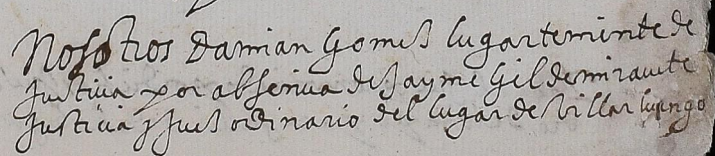 Nosotros Damian Gomez lugarteniente de
Justicia por absencia de Jayme Gil de miravete
Justicia y Juez ordinario del lugar de Villarluengo